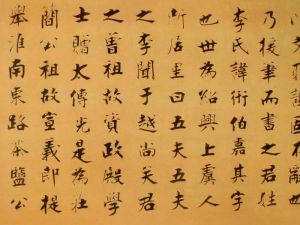 辭也
乃援筆而書之君姓
李氏諱術伯嘉其字
也世為紹興上虞人
所居里曰五夫五夫
之李聞于越尚矣君
之曾祖故資政殿學
士贈太傅光是為莊
簡公祖故宣義郎提
舉淮南東路茶鹽公